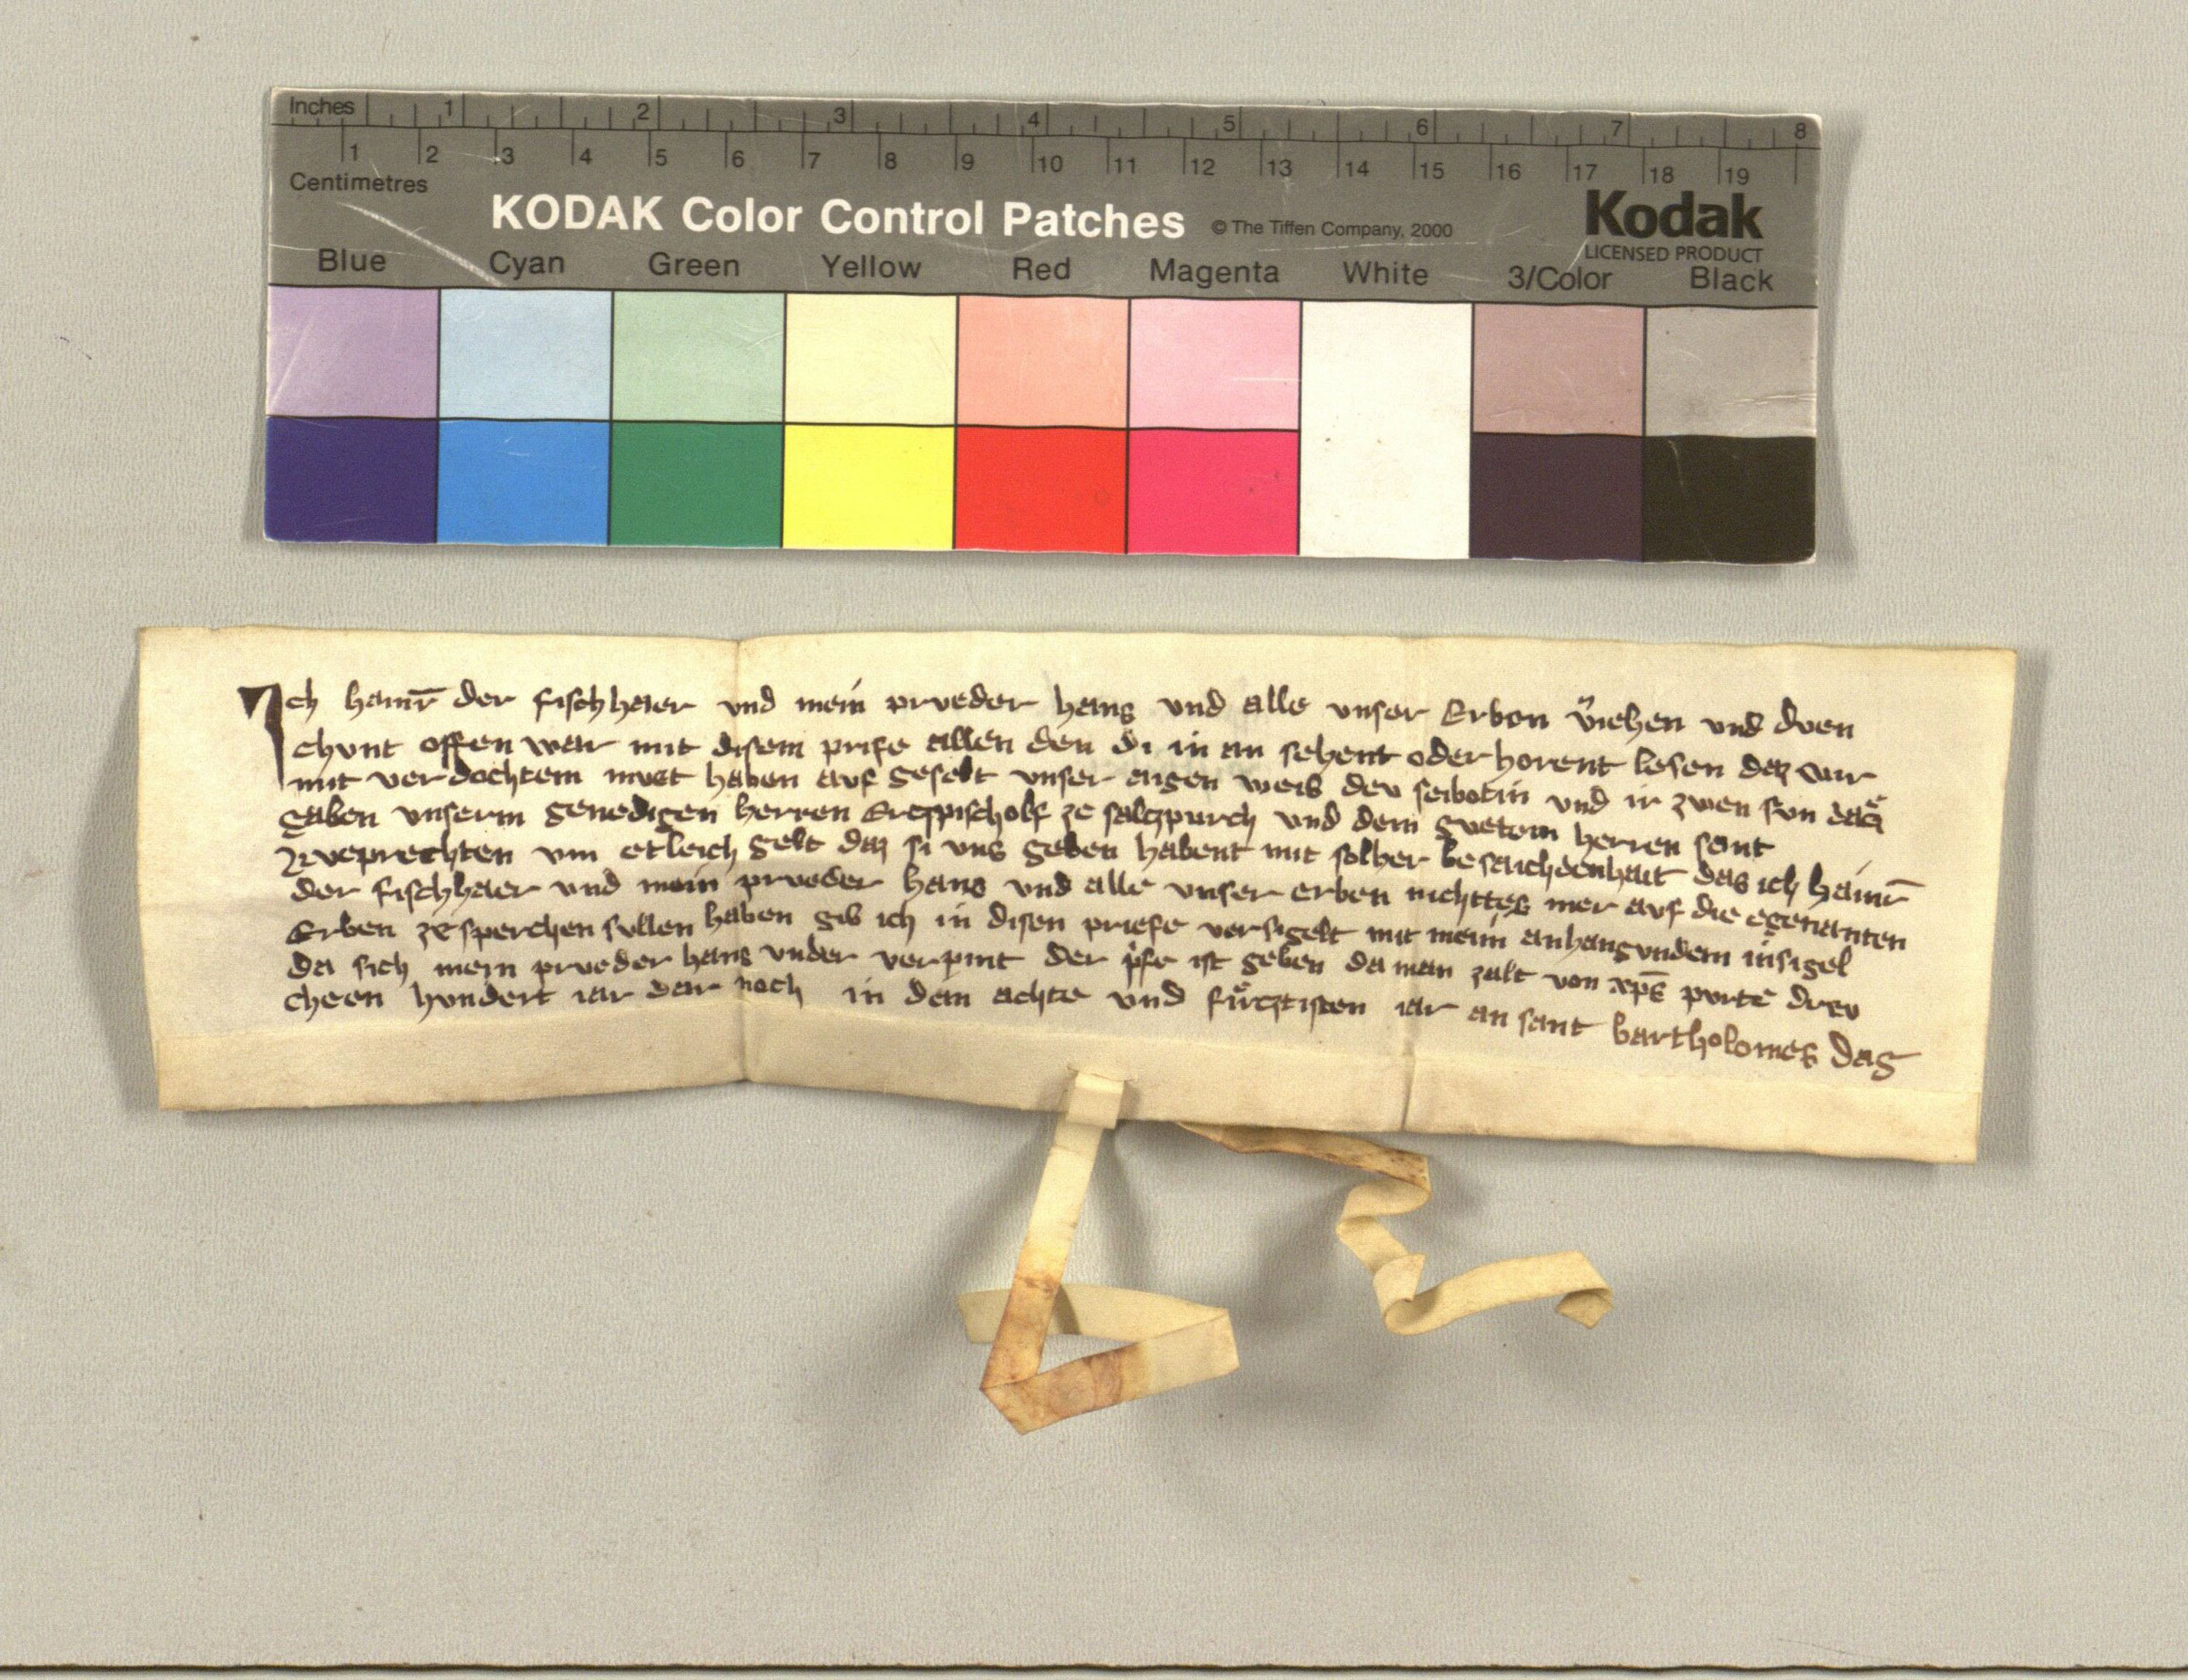 Inches 1 2 3 4 5 6 7 8
1 2 3 4 5 6 7 8 9 10 11 12 13 14 15 16 17 18 19
Centimetres
KODAK Color Control Patches © The Tiffen Company, 2000 Kodak
LICENSED PRODUCT
Blue Cyan Green Yellow Red Magenta White 3/Color Black
Ich hainr̄ der fischhaer vnd mein prveder hans vnd alle vnser Erben v̈iehen vnd dven
chvnt offen war mit disem prife allen den di in an sehent oder horent lesen daz wir
mit verdachtem mvet haben avf geselt vnser aigen weib dev seibotin vnd ir zwen svn
gaben vnserm genedigen herren Erczpischolf ze salczpurch vnd dem gvetem herren sant
Rveprechten vm etleich gelt daz si vns geben habent mit solher beschaidenhait das ich hainr̄
der fischhaer vnd mein prveder hans vnd alle vnser erben nichttes mer avf die egenanten
Erben ze sperchen svllen haben gib ich in disen priefe versigelt mit meim anhangvndem insigel
da sich mein prveder hans vnder verpint der p̓fe ist geben da man zalt von xp̄s pvrte drev
cheen hvndert iar dar noch in dem achte vnd fürcztisten iar an sant bartholomes dag